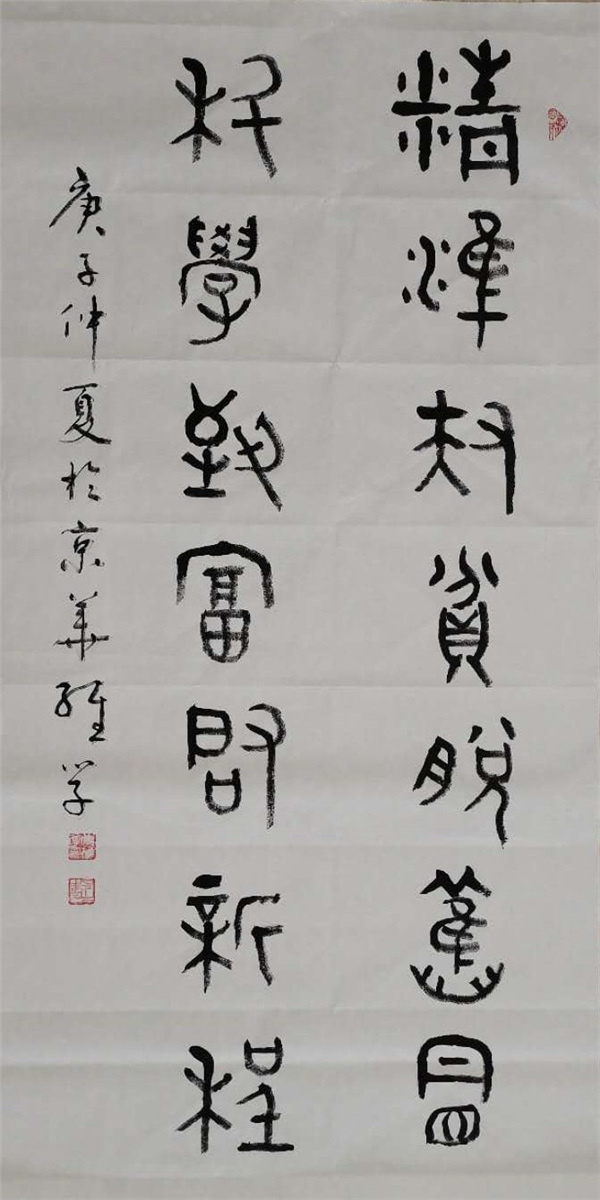 精準扶貧脫舊冒
科學致富啟新程
庚子仲夏於京華維学